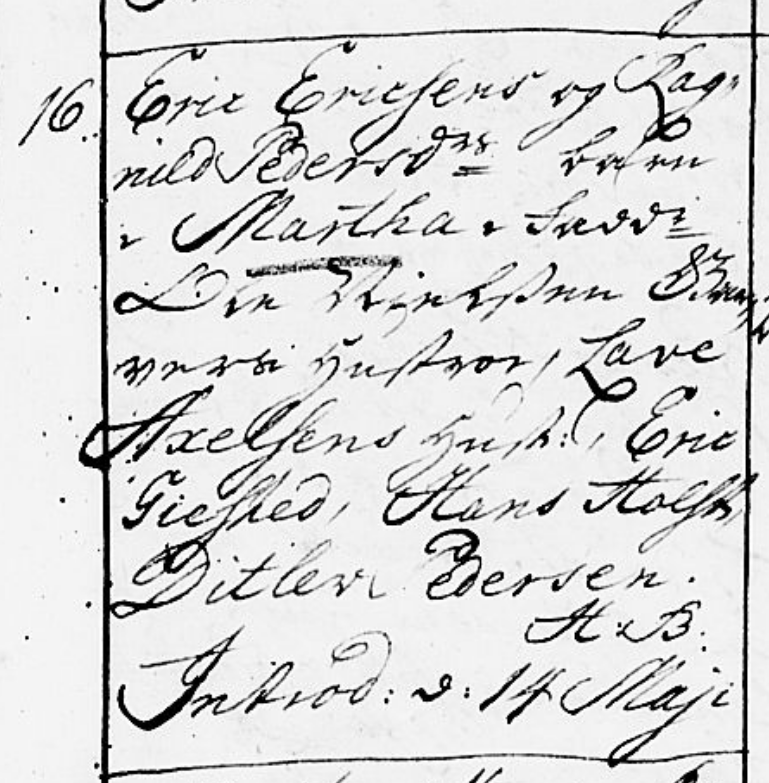 16. Eric Erichsens og Rag-
nild Pedersdrs barn
Martha. Fadd:
Ole Nielssen
hustroe, Lave
Axelsens hust:, Eric
Giefsted, Hans Holst,
Ditlev Pedersen.
H:B.
Introd: d: 14 Maji